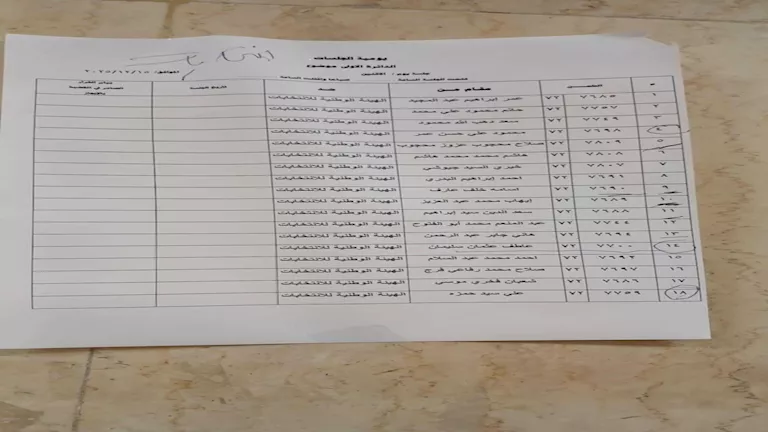 يومية الجلسات
الدائرة الاولى موضوع
جلسة يوم / الاثنين الموافق/ ٢٠٢٥/١٢/١٥
فتحت الجلسة الساعة صباحا واقفلت الساعة
م القضية مقام من ضد تاريخ الجلسة القرار الصادر في القضية بالايجاز
١ ٧٦٨٥ ٧٢ عمر ابراهيم عبد المهيد الهيئة الوطنية للانتخابات
٢ ٧٧٥٧ ٧٢ حاتم محمود على محمد الهيئة الوطنية للانتخابات
٣ ٧٧٤٩ ٧٢ سعد دهب الله محمود الهيئة الوطنية للانتخابات
٤ ٧٦٩٨ ٧٢ محمود على حسن عمر الهيئة الوطنية للانتخابات
٥ ٧٨٠٩ ٧٢ صلاح محجوب عزوز محجوب الهيئة الوطنية للانتخابات
٦ ٧٨٠٨ ٧٢ هاشم محمد محمد هاشم الهيئة الوطنية للانتخابات
٧ ٧٨٠٧ ٧٢ خيرى السيد جيوشى الهيئة الوطنية للانتخابات
٨ ٧٦٩٦ ٧٢ احمد ابراهيم البدرى الهيئة الوطنية للانتخابات
٩ ٧٦٩٠ ٧٢ اسامه خلف عارف الهيئة الوطنية للانتخابات
١٠ ٧٦٨٩ ٧٢ ايهاب محمد عبد العزيز الهيئة الوطنية للانتخابات
١١ ٧٦٨٨ ٧٢ سعد الدين سيد ابراهيم الهيئة الوطنية للانتخابات
١٢ ٧٧٤٤ ٧٢ عبد المنعم محمد ابو الفتوح الهيئة الوطنية للانتخابات
١٣ ٧٦٩٤ ٧٢ هانى جابر عبد الرحمن الهيئة الوطنية للانتخابات
١٤ ٧٧٠٠ ٧٢ عاطف عثمان سليمان الهيئة الوطنية للانتخابات
١٥ ٧٦٩٢ ٧٢ احمد محمد عبد السلام الهيئة الوطنية للانتخابات
١٦ ٧٦٩٧ ٧٢ صلاح محمد رفاعى فرج الهيئة الوطنية للانتخابات
١٧ ٧٦٨٦ ٧٢ شعبان فخرى موسى الهيئة الوطنية للانتخابات
١٨ ٧٧٥٩ ٧٢ على سيد حمزه الهيئة الوطنية للانتخابات